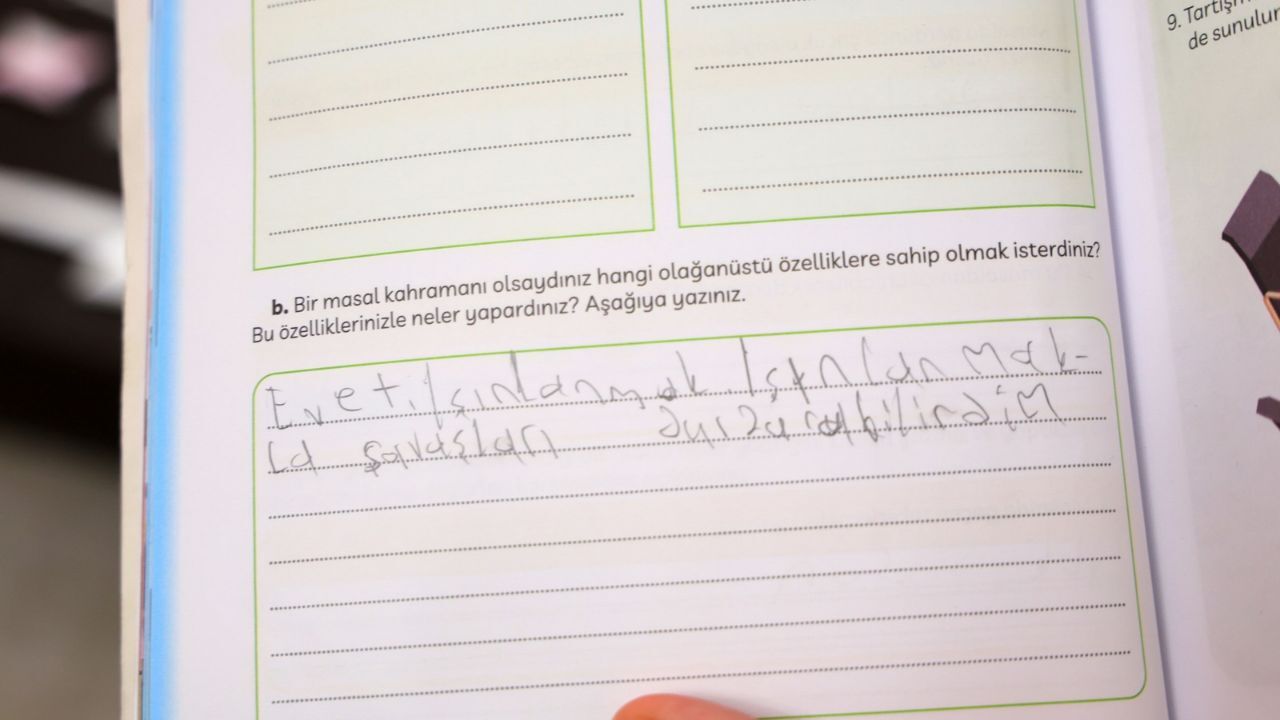 9. Tartışm
de sunulur
b. Bir masal kahramanı olsaydınız hangi olağanüstü özelliklere sahip olmak isterdiniz?
Bu özelliklerinizle neler yapardınız? Aşağıya yazınız.
Evet. Işınlanmak. Işınlanmak-
la şavaşları durdurabilirdim